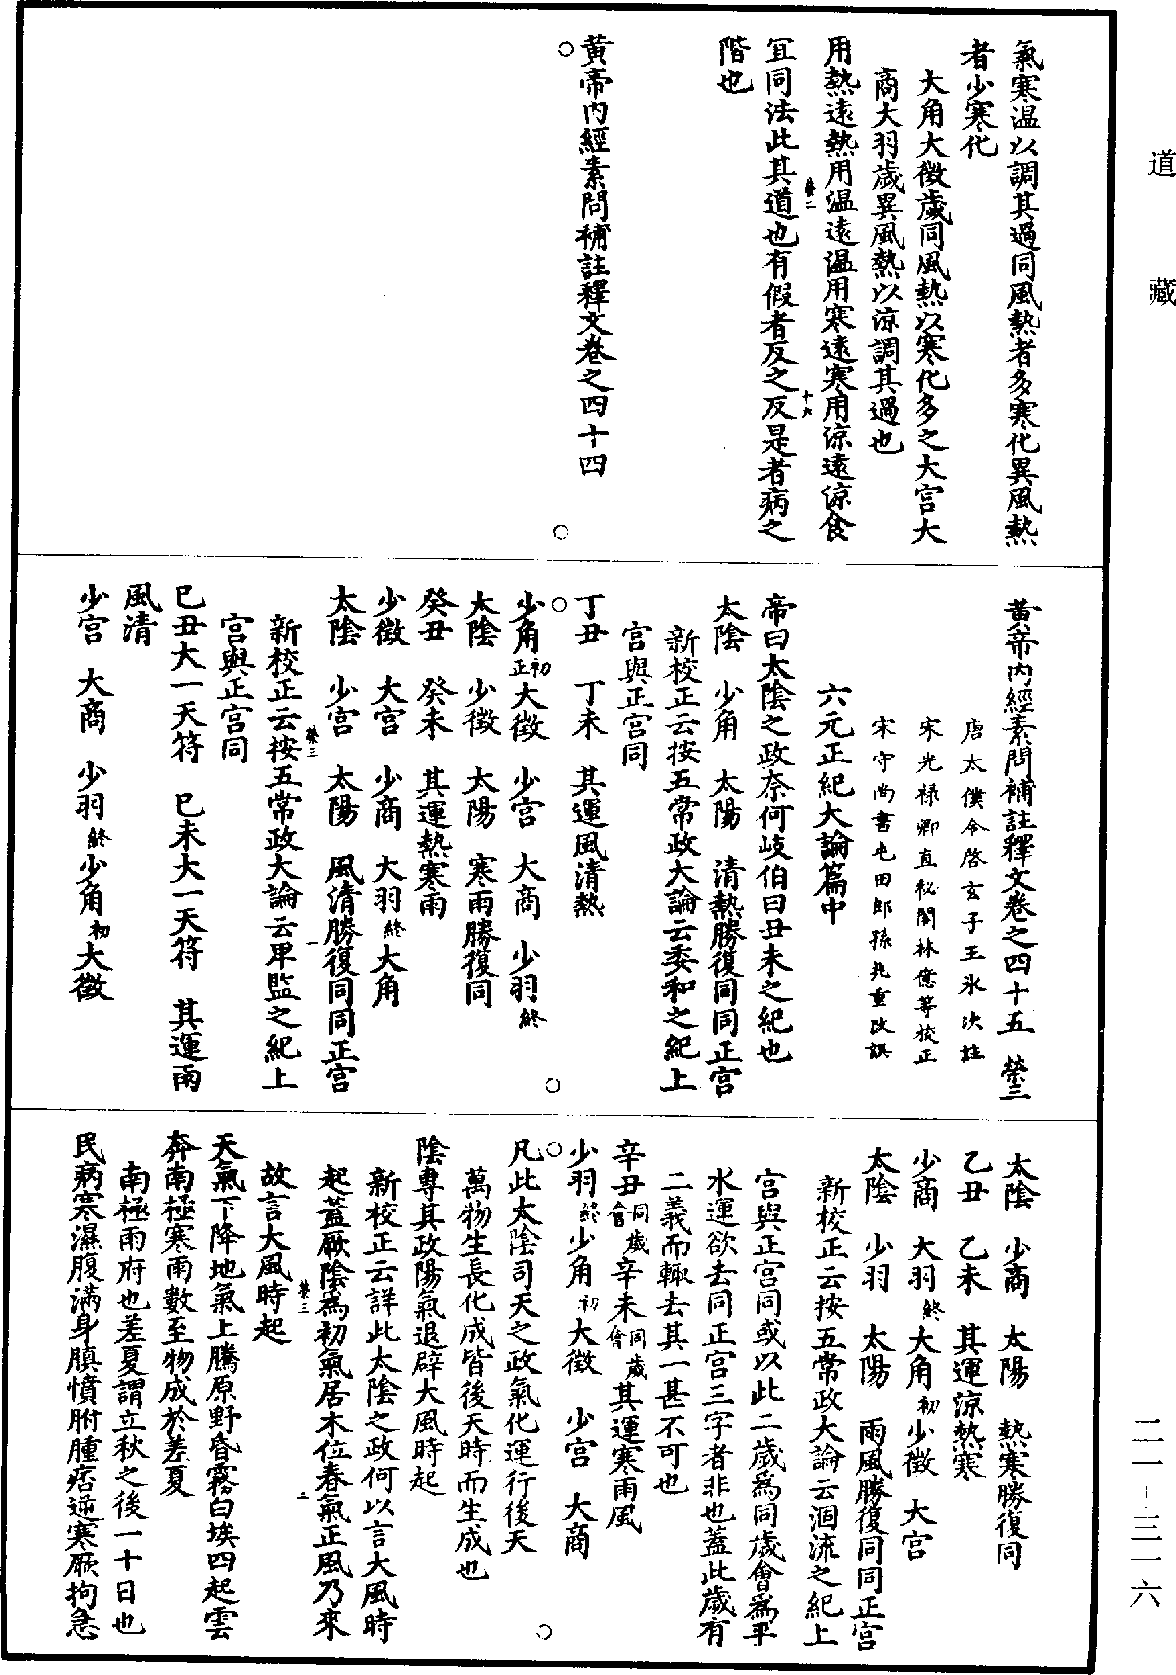 道藏
氣寒温以調其過同風熱者多寒化異風熱
者少寒化
大角大徵歲同風熱以寒化多之大宫大
商大羽歲異風熱以涼調其過也
用熱遠熱用温遠温用寒遠寒用涼遠涼食
宜同法此其道也有假者反之反是者病之
階也
黄帝内經素問補註釋文卷之四十四
黄帝内經素問補註釋文卷之四十五 榮三
唐太僕令啓玄子王氷次註
宋光禄卿直秘閣林億等校正
宋守尚書屯田郎孫兆重改誤
六元正紀大論篇中
帝曰太陰之政奈何岐伯曰丑未之紀也
太陰 少角 太陽 清熱勝復同同正宫
新校正云按五常政大論云委和之紀上
宫與正宫同
丁丑 丁未 其運風清熱
少角初正大徵 少宫 大商 少羽終
太陰 少徵 太陽 寒雨勝復同
癸丑 癸未 其運熱寒雨
少徵 大宫 少商 大羽終大角
太陰 少宫 太陽 風清勝復同同正宫
新校正云按五常政大論云卑監之紀上
宫與正宫同
巳丑大一天符 巳未大一天符 其運雨
風清
少宫 大商 少羽終少角初大徵
太陰 少商 太陽 熱寒勝復同
乙丑 乙未 其運涼熱寒
少商 大羽終大角初少徵 大宫
太陰 少羽 太陽 雨風勝復同同正宫
新校正云按五常政大論云涸流之紀上
宫與正宫同或以此二歲爲同歲會爲平
水運欲去同正宫三字者非也蓋此歲有
二義而輒去其一甚不可也
辛丑同歲會辛未同歲會其運寒雨風
少羽終少角初大徵 少宫 大商
凡此太陰司天之政氣化運行後天
萬物生長化成皆後天時而生成也
陰專其政陽氣退辟大風時起
新校正云詳此太陰之政何以言大風時
起蓋厥陰爲初氣居木位春氣正風乃來
故言大風時起
天氣下降地氣上騰原野昏霧白埃四起雲
奔南極寒雨數至物成於差夏
南極雨府也差夏謂立秋之後一十日也
民病寒濕腹滿身䐜憤胕腫痞逆寒厥拘急
榮二
十六
榮三
一
榮三
二
二一-三一六